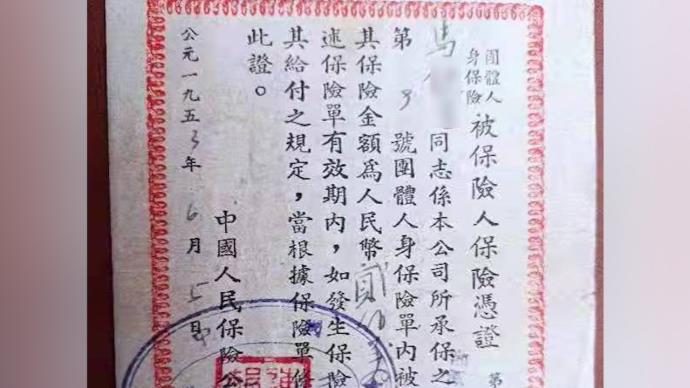 團體人身保險被保險人保險憑證
第
馬 同志係本公司所承保之
第 3 號團體人身保險單內被
其保險金額爲人民幣貳佰
述保險單有效期內，如發生保險
其給付之規定，當根據保險單條
此證。
中國人民保險公
公元一九五3年 6 月 日